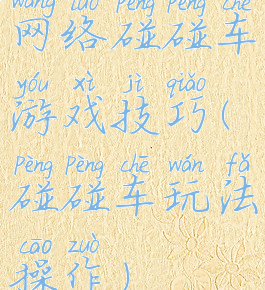 wǎng luò Pèng Pèng chē
网络碰碰车
yóu xì jì qiǎo
游戏技巧(
Pèng Pèng chē wán fǎ
碰碰车玩法
cāo zuò
操作)